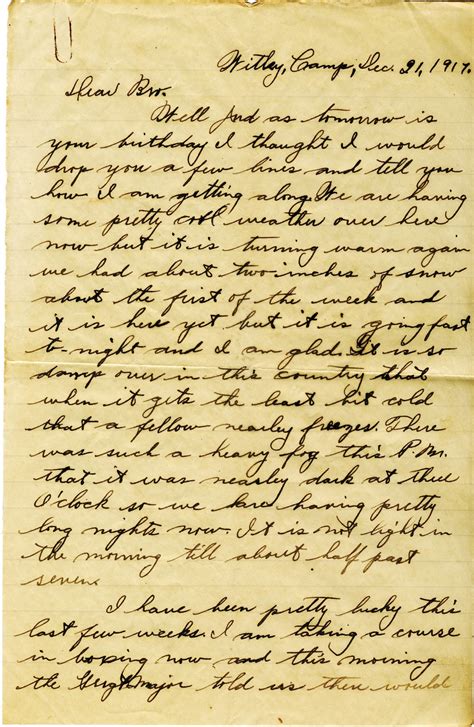 Witley, Camp, Dec. 21, 1917.
Dear Bro.
Well Jud as tomorrow is
your birthday I thought I would
drop you a few lines and tell you
how I am getting along. We are having
some pretty cool weather over here
now but it is turning warm again
we had about two inches of snow
about the first of the week and
it is here yet but it is going fast
to-night and I am glad. It is so
damp over in this country that
when it gets the least bit cold
that a fellow nearley freezes. There
was such a heavy fog this P.M.
that it was nearley dark at three
O'clock so we are having pretty
long nights now. It is not light in
the morning till about half past
seven.
I have been pretty lucky this
last few weeks. I am taking a course
in boxing now and this morning
the major told us there would